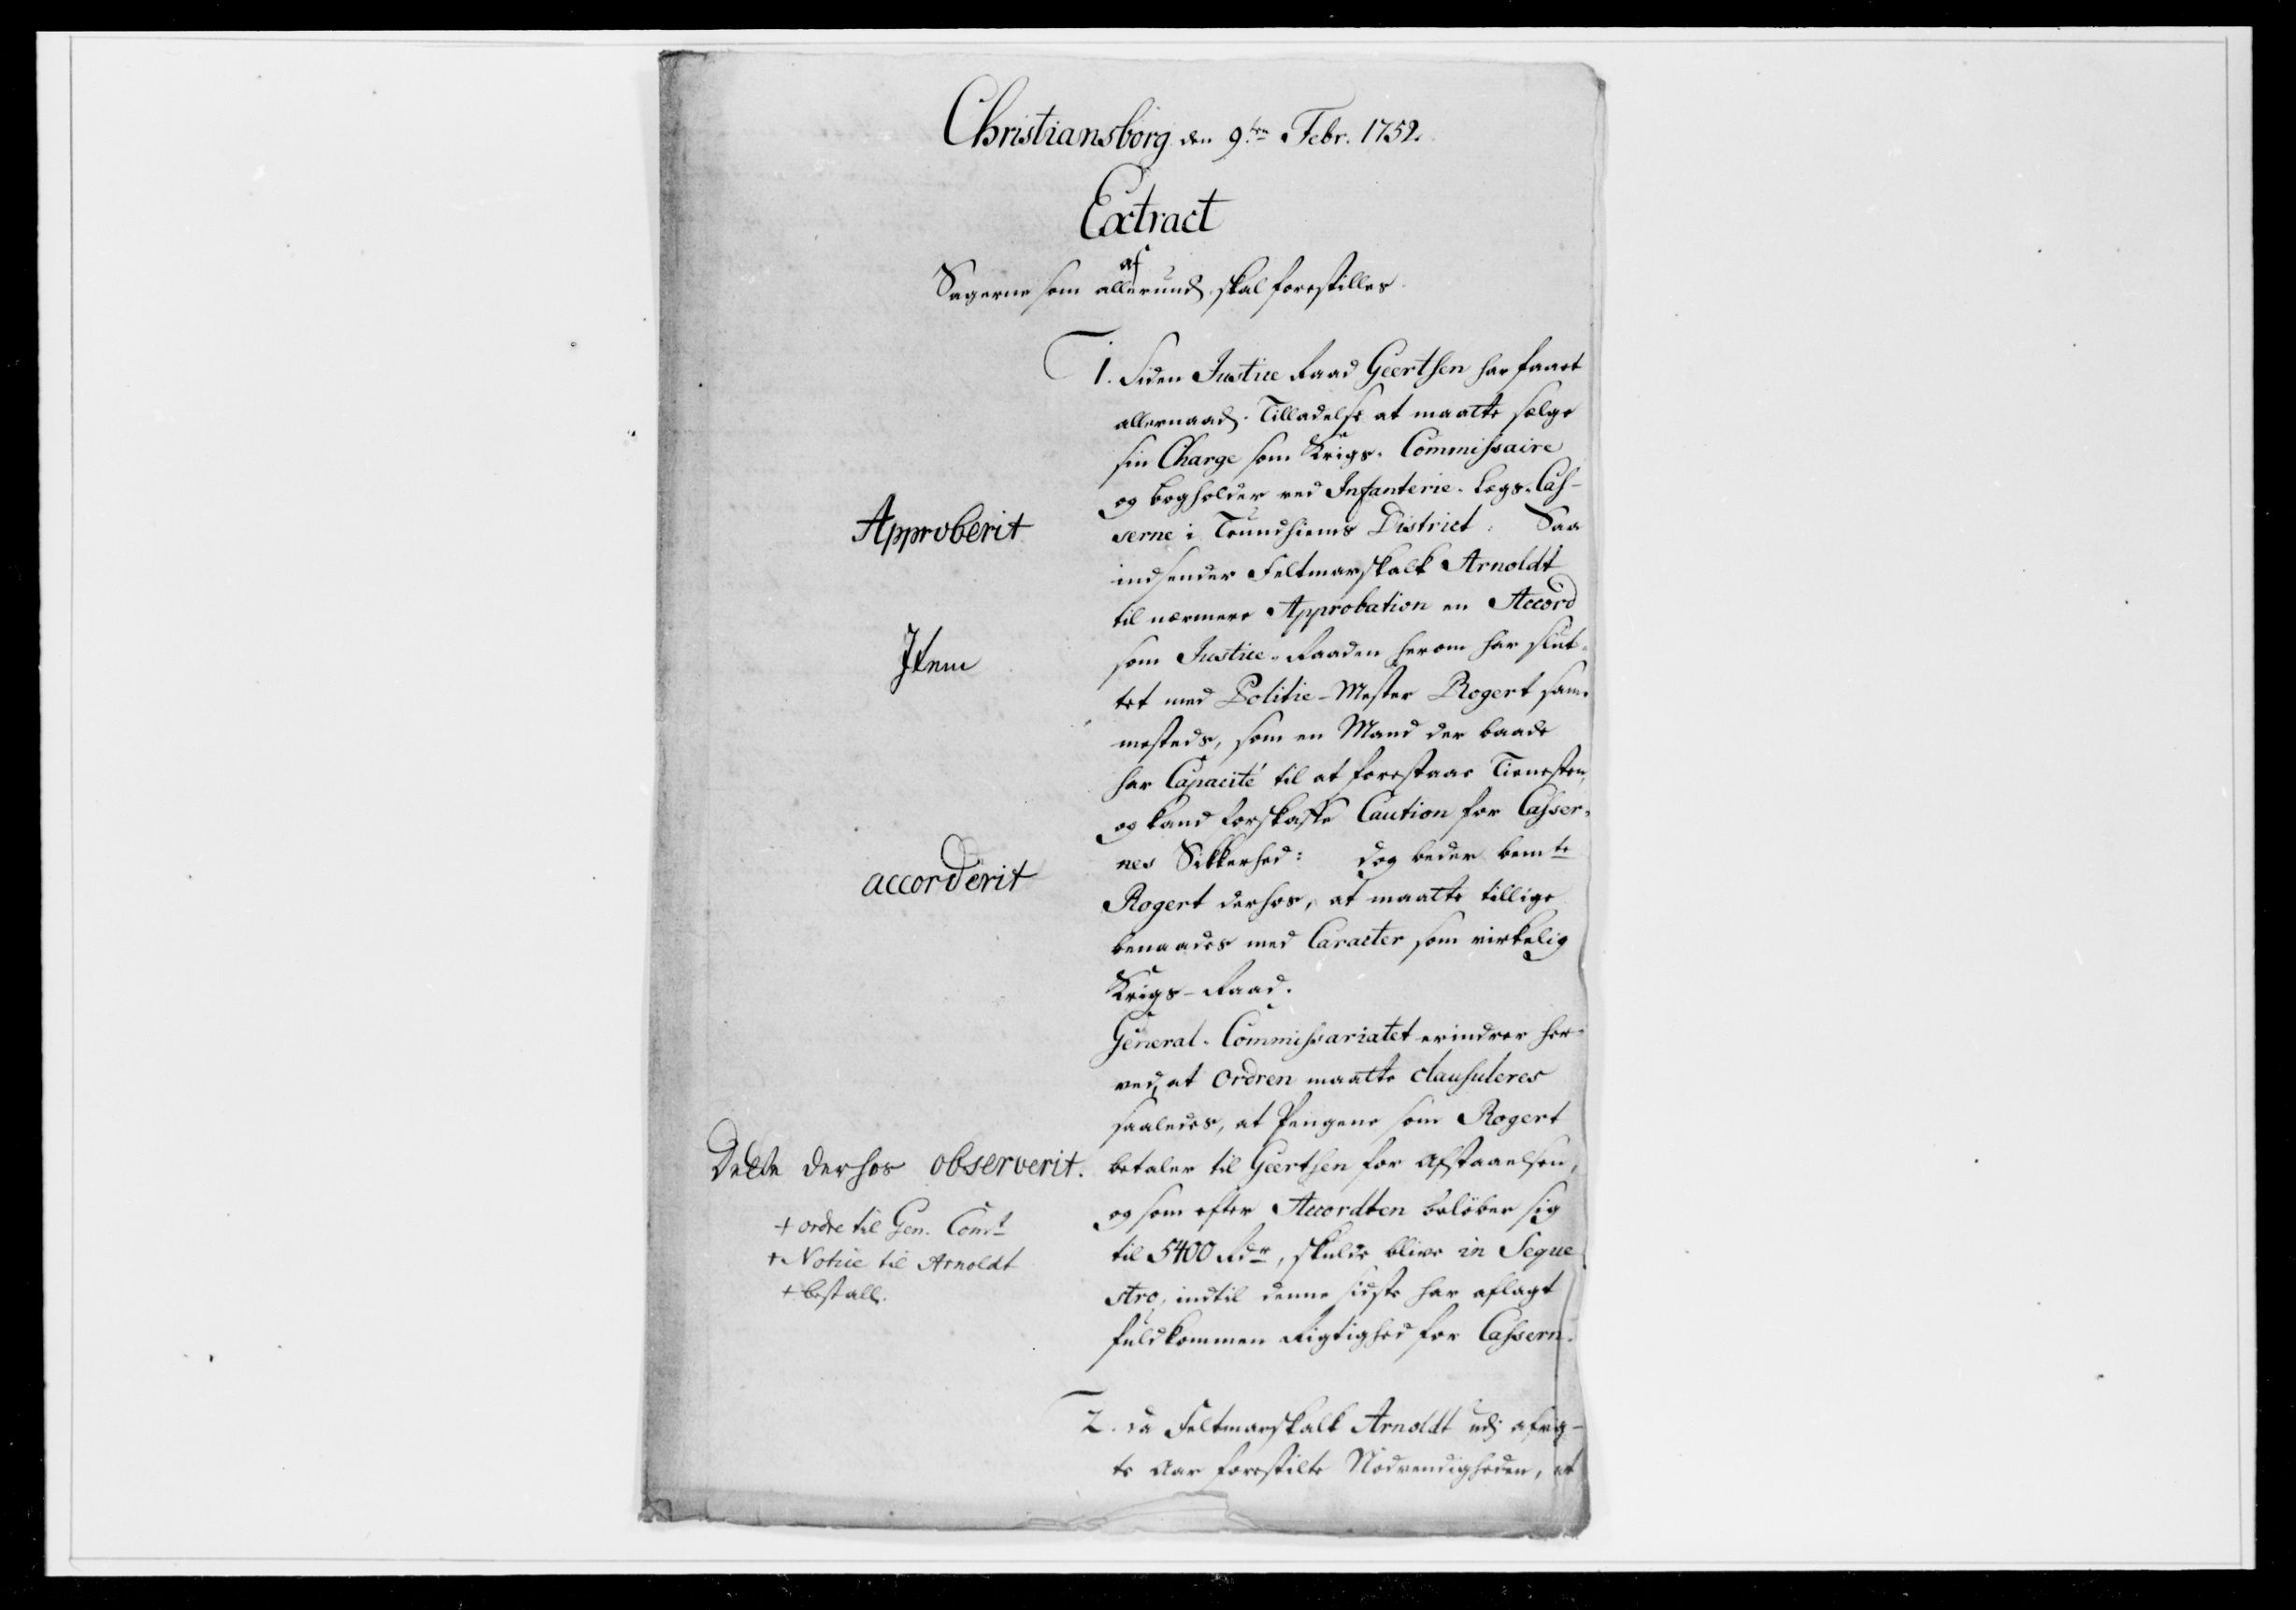 Christiansborg den 9.de Febr. 1752.
Extract
af
Sagerne som allerund. skal forestilles.
1. Siden Justice Raad Geertsen har faaet
allernaad. Tilladelse at maatte sælge
sin Charge som Krigs-Commissaire
og bogholder ved Infanterie-Lægs-Cas-
serne i Trundhiems District: Saa
indsender Feltmarskalk Arnoldt
til nærmere Approbation en Accord
som Justice-Raaden herom har slut-
tet med Politie-Mester Rogert sam-
mesteds, som en Mand der baade
har Capacité til at forestaae Tienesten,
og kand forskaffe Caution for Casser-
nes Sikkerhed: dog beder bem.te
Rogert derhos, at maatte tillige
benaades med Caracter som virkelig
Krigs-Raad.
General-Commissariatet erindrer her-
ved, at Ordren maatte clausuleres
saaledes, at Pengene som Rogert
betaler til Geertsen for Afstaaelsen,
og som efter Accordten beløber sig
til 5400 Rdr, skulde blive in Seque
stro, indtil denne sidste har aflagt
fuldkommen Rigtighed for Cassern.
2. Da Feltmarskalk Arnoldt udj afvig-
te Aar forestilte Nødvendigheden, at
Approberit
Item
accorderit
Dette derhos observerit.
+ ordre til Gen. Com.t
+ Notice til Arnoldt
+ bestall.